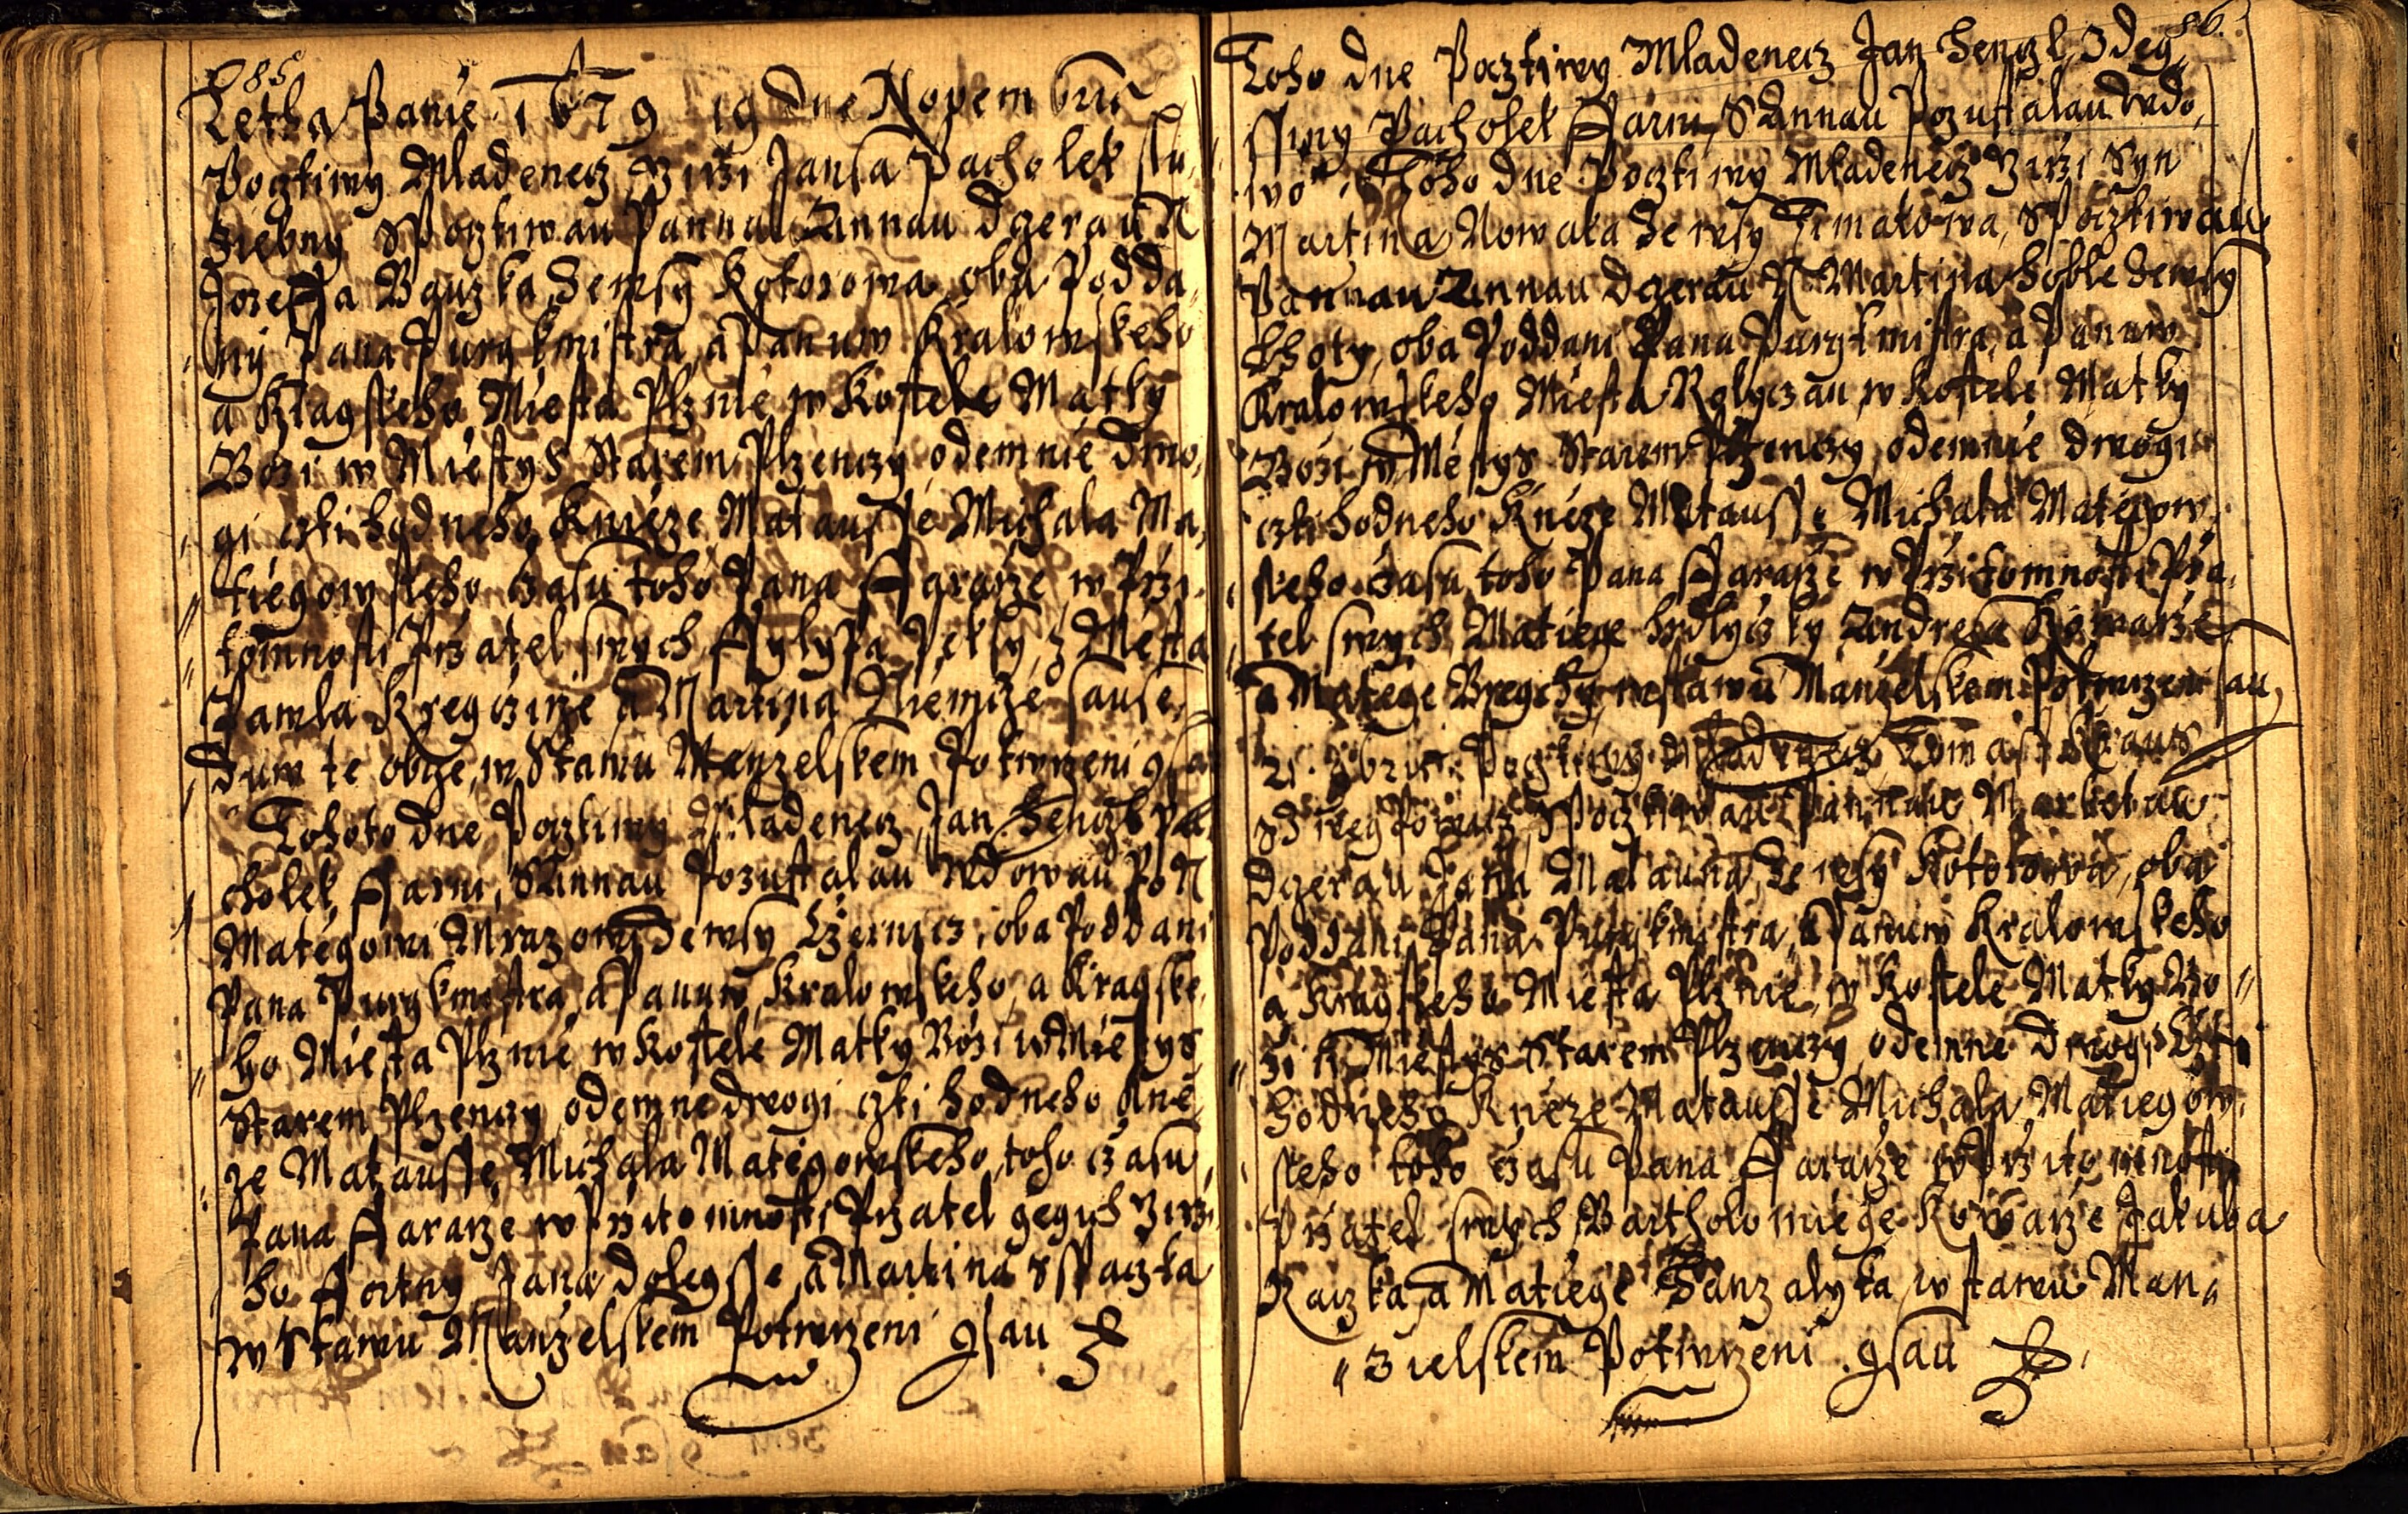 85
Letha Panie 1679 19 dne Novembru
Pocztiwy Mladenecz Irzi Jansa Pacholek slu,
ziebny SPocztiwau Pannau Annau Dczerau N
Jozeffa Bauzka, Zewsy Kotorowa oba Podda,
ny Pana Purgkmistra, a Panuw Kralowskeho
a Kragskeho Miesta Plznie w Kostele Matky
Bozi w Miestys Starem Plzenczy odemnie dwo,
gi czti hodneho Knieze Matausse Michala Ma,
tiegowskeho czasu toho Pana Fararze w Przi,
tomnosti Przatel swych Fylypa Peksy, z Miesta
Pawla Kregczirze a Martina Niemcze sause,
duw te obcze, w Stawu Manzelskem Potwrzeni gsau
Tohoto dne Pocztiwy Mladenecz, Jan Henczl Pa,
cholek Farni, SAnnau Pozustalau Wdowau Po N
Mategowi Mrazowi Zewsy Czernicz, oba Poddani
Pana Purgkmistra, a Panuw Kralowskeho, a Kragske,
ho Miesta Plznie w Kostele Matky Bozi w Miestys
Starem Plzenczy odemne dwogi czti hodneho Kne,
ze Matausse Michala Mategowskeho, toho czasu
Pana Fararze w Przitomnosti Przatel gegich Irzi,
ho Fortny Jana Dolegsse, a Martina SSpaczka
w Stawu Manzelskem Potwrzeni gsau
86
Toho dne Pocztiwy Mladenecz Jan Henczl, Zdeg,
ssiny Pacholek Farni, SAnnau Pozustalau Wdo,
wo Toho dne Pocztiwy Mladenecz Irzi Syn
Martina Nowaka Ze wsy Timakowa, SPocztiwau
Pannau Annau Dczerau N Martina Hoble Zewsy
Lhoty, oba Poddani Pana Purgkmistra, a Panuw
Kralowskeho Miesta Rokyczan w Kostele Matky
Bozi w Mestys Starem Plzenczy odemnie dwogi
czti hodneho Kneze Matausse Michala Mategow,
skeho czasu toho Pana Fararze w Przitomnosti Prza,
tel swych Matiege Andresa Kowarze
a Matege westawu Manzelskem Potwrzeni sau,
21. Pocztiwy Mladenecz Tomass Kraus
SPocztiwau Pannau Marketau
Dczerau Jana Matauna, Ze wsy Kotorowa, oba
Poddani Pana Purgkmistra, a Panuw Kralowskeho
a Kragskeho Miesta Plznie, w Kostele Matky Bo
zi w Miestys Starem Plzenczy odemne dwogi Czti
hodneho Kneze Matausse Michala Matiegow,
skeho toho czasu Pana Fararze w Przitomnosti
Przatel swych Bartholomiege Kowarze Jakuba
Raczka, a Matiege w stawu Man,
zielskem Potwrzeni gsau